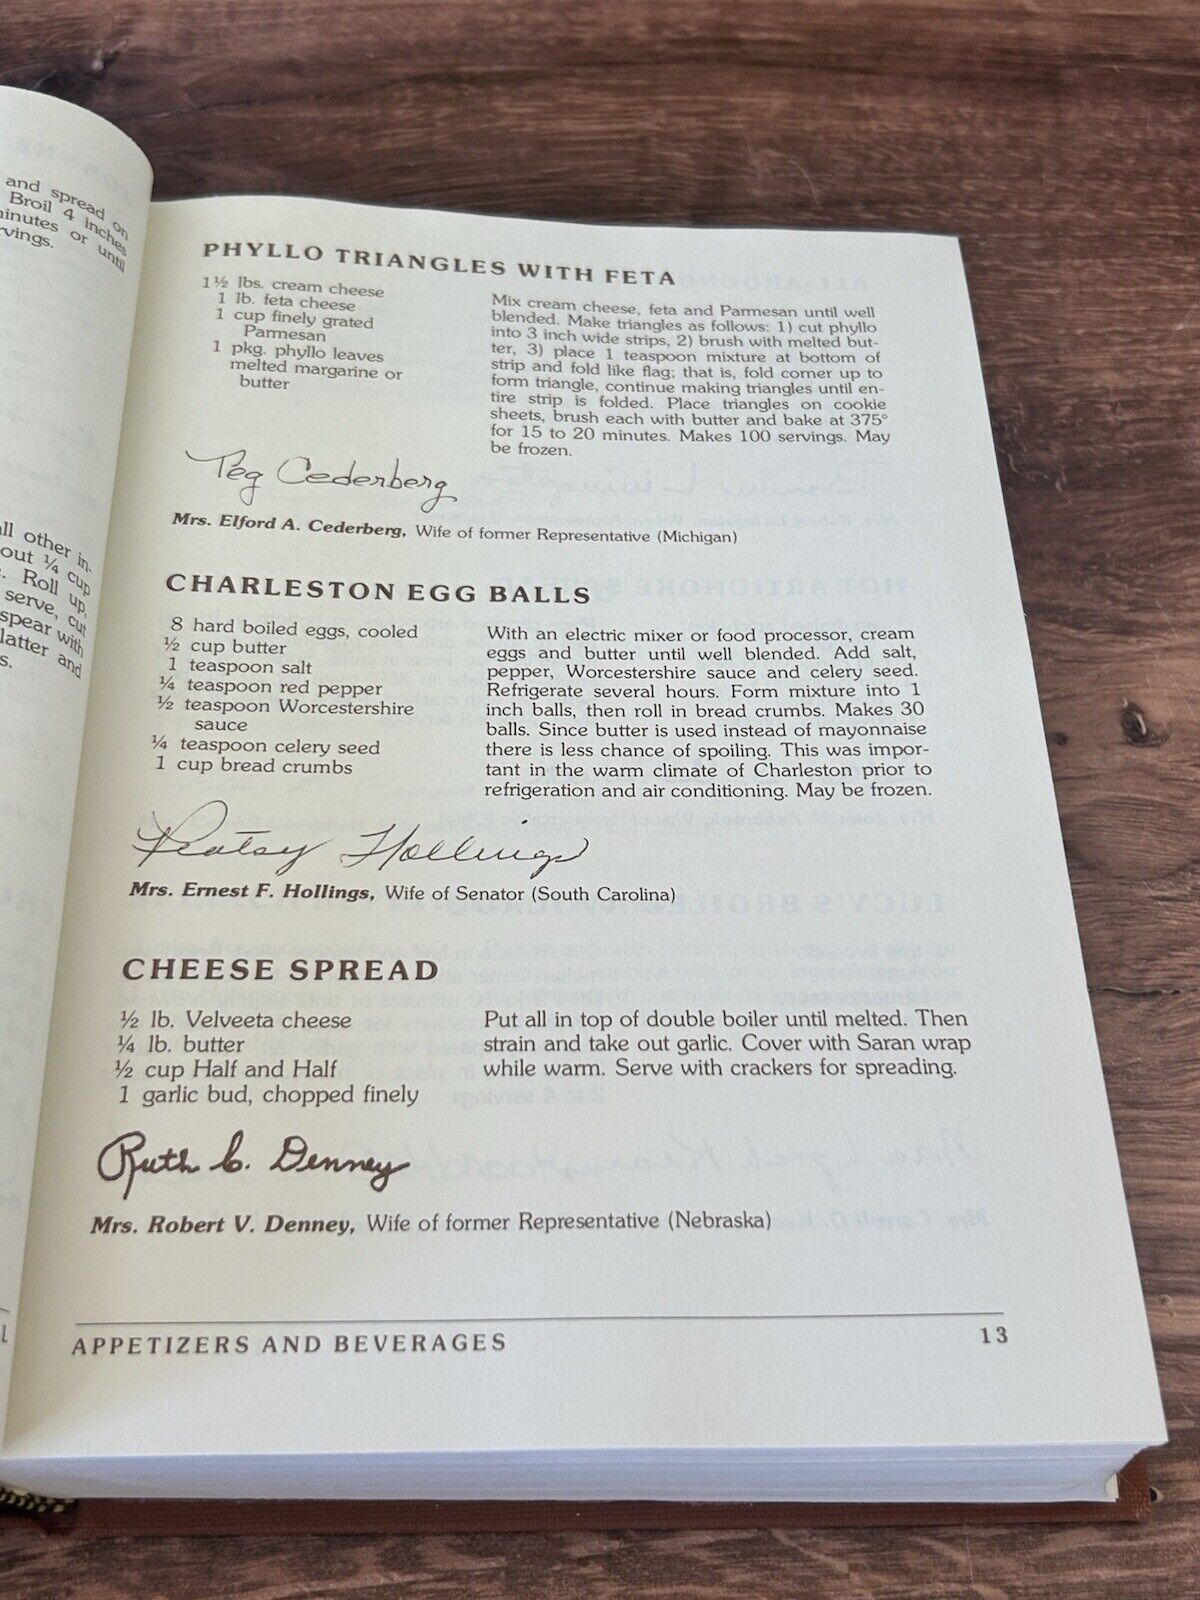 and spread on
Broil 4 inches
minutes or until
vings.
all other in-
out ¼ cup
Roll up,
serve, cut
spear with
latter and
s.
PHYLLO TRIANGLES WITH FETA
1½ lbs. cream cheese
1 lb. feta cheese
1 cup finely grated
Parmesan
1 pkg. phyllo leaves
melted margarine or
butter
Mix cream cheese, feta and Parmesan until well
blended. Make triangles as follows: 1) cut phyllo
into 3 inch wide strips, 2) brush with melted but-
ter, 3) place 1 teaspoon mixture at bottom of
strip and fold like flag; that is, fold corner up to
form triangle, continue making triangles until en-
tire strip is folded. Place triangles on cookie
sheets, brush each with butter and bake at 375°
for 15 to 20 minutes. Makes 100 servings. May
be frozen.
Peg Cederberg
Mrs. Elford A. Cederberg, Wife of former Representative (Michigan)
CHARLESTON EGG BALLS
8 hard boiled eggs, cooled
½ cup butter
1 teaspoon salt
¼ teaspoon red pepper
½ teaspoon Worcestershire
sauce
¼ teaspoon celery seed
1 cup bread crumbs
With an electric mixer or food processor, cream
eggs and butter until well blended. Add salt,
pepper, Worcestershire sauce and celery seed.
Refrigerate several hours. Form mixture into 1
inch balls, then roll in bread crumbs. Makes 30
balls. Since butter is used instead of mayonnaise
there is less chance of spoiling. This was impor-
tant in the warm climate of Charleston prior to
refrigeration and air conditioning. May be frozen.
Peatsy Hollings
Mrs. Ernest F. Hollings, Wife of Senator (South Carolina)
CHEESE SPREAD
½ lb. Velveeta cheese
¼ lb. butter
½ cup Half and Half
1 garlic bud, chopped finely
Put all in top of double boiler until melted. Then
strain and take out garlic. Cover with Saran wrap
while warm. Serve with crackers for spreading.
Ruth C. Denney
Mrs. Robert V. Denney, Wife of former Representative (Nebraska)
APPETIZERS AND BEVERAGES 13